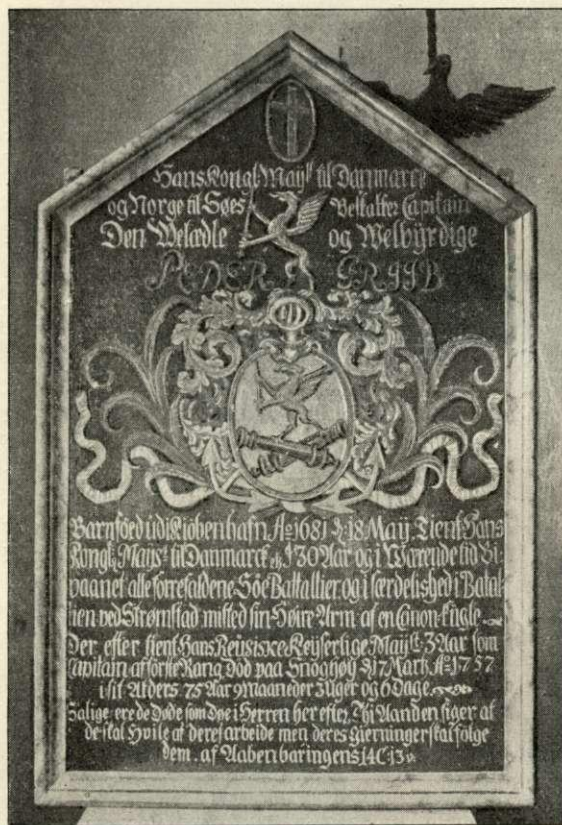 Hans Kongl May<sup>tt</sup> til Danmarck
og Norge til Søes Bestalter Capitain
Den Welædle og Welbÿrdige
PEDER GRIIB
Barnföed udi Kjöbenhafn A<sup>o</sup> 1681 d. 18 Maij. Tient Hans
Kongl. Mays<sup>tt</sup> til Danmarck etc. I 30 Aar og i Wærende tid Bi-
vaanet alle forrefaldene Söe Battallier, og i særdelished i Batal-
lien ved Strömstad misted sin Höire Arm af en Canon-Kugle
Der efter tient Hans Reüsiske Keÿserlige May<sup>tt</sup> 3 Aar som
Capitain af förste Rang Död paa Snoghöÿ d. 17 Marti A<sup>o</sup> 1757
i sit Alders 75 Aar 9 Maaneder 3 Uger og 6 Dage.
Salige ere de Döde som Döe i Herren her efter, Thi Aanden siger at
de skal Hvile af deres arbeide men deres Gierninger skal fölge
dem. af Aabenbaringens 14 C: 13 v.